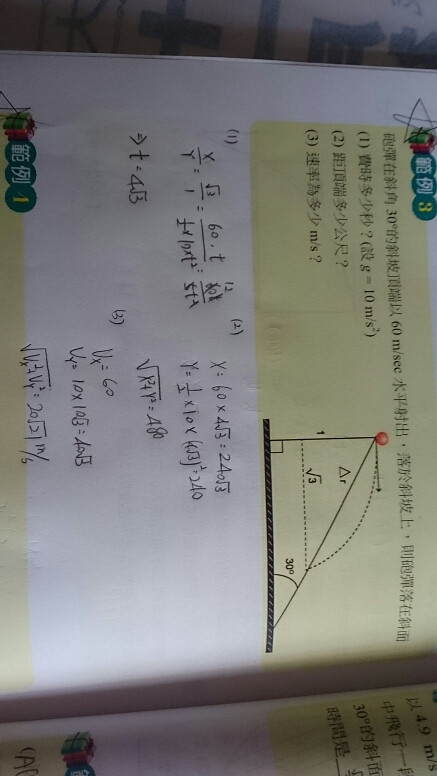 範例 3
砲彈在斜角 30°的斜坡頂端以 60 m/sec 水平射出，落於斜坡上，則砲彈落在斜面
(1) 費時多少秒？(設 g = 10 m/s²)
(2) 距頂端多少公尺？
(3) 速率為多少 m/s？
1
√3
△r
30°
(1)
X/Y = √3/1 = 60·t / ½×10×t² =
⇒ t = 4√3
(2)
X = 60 × 4√3 = 240√3
Y = ½ × 10 × (4√3)² = 240
√X²+Y² = 480
(3)
Vx = 60
√Vx²+Vy² = 20√21 m/s
範例 4
以 4.9 m/s
30°的斜面
時間是